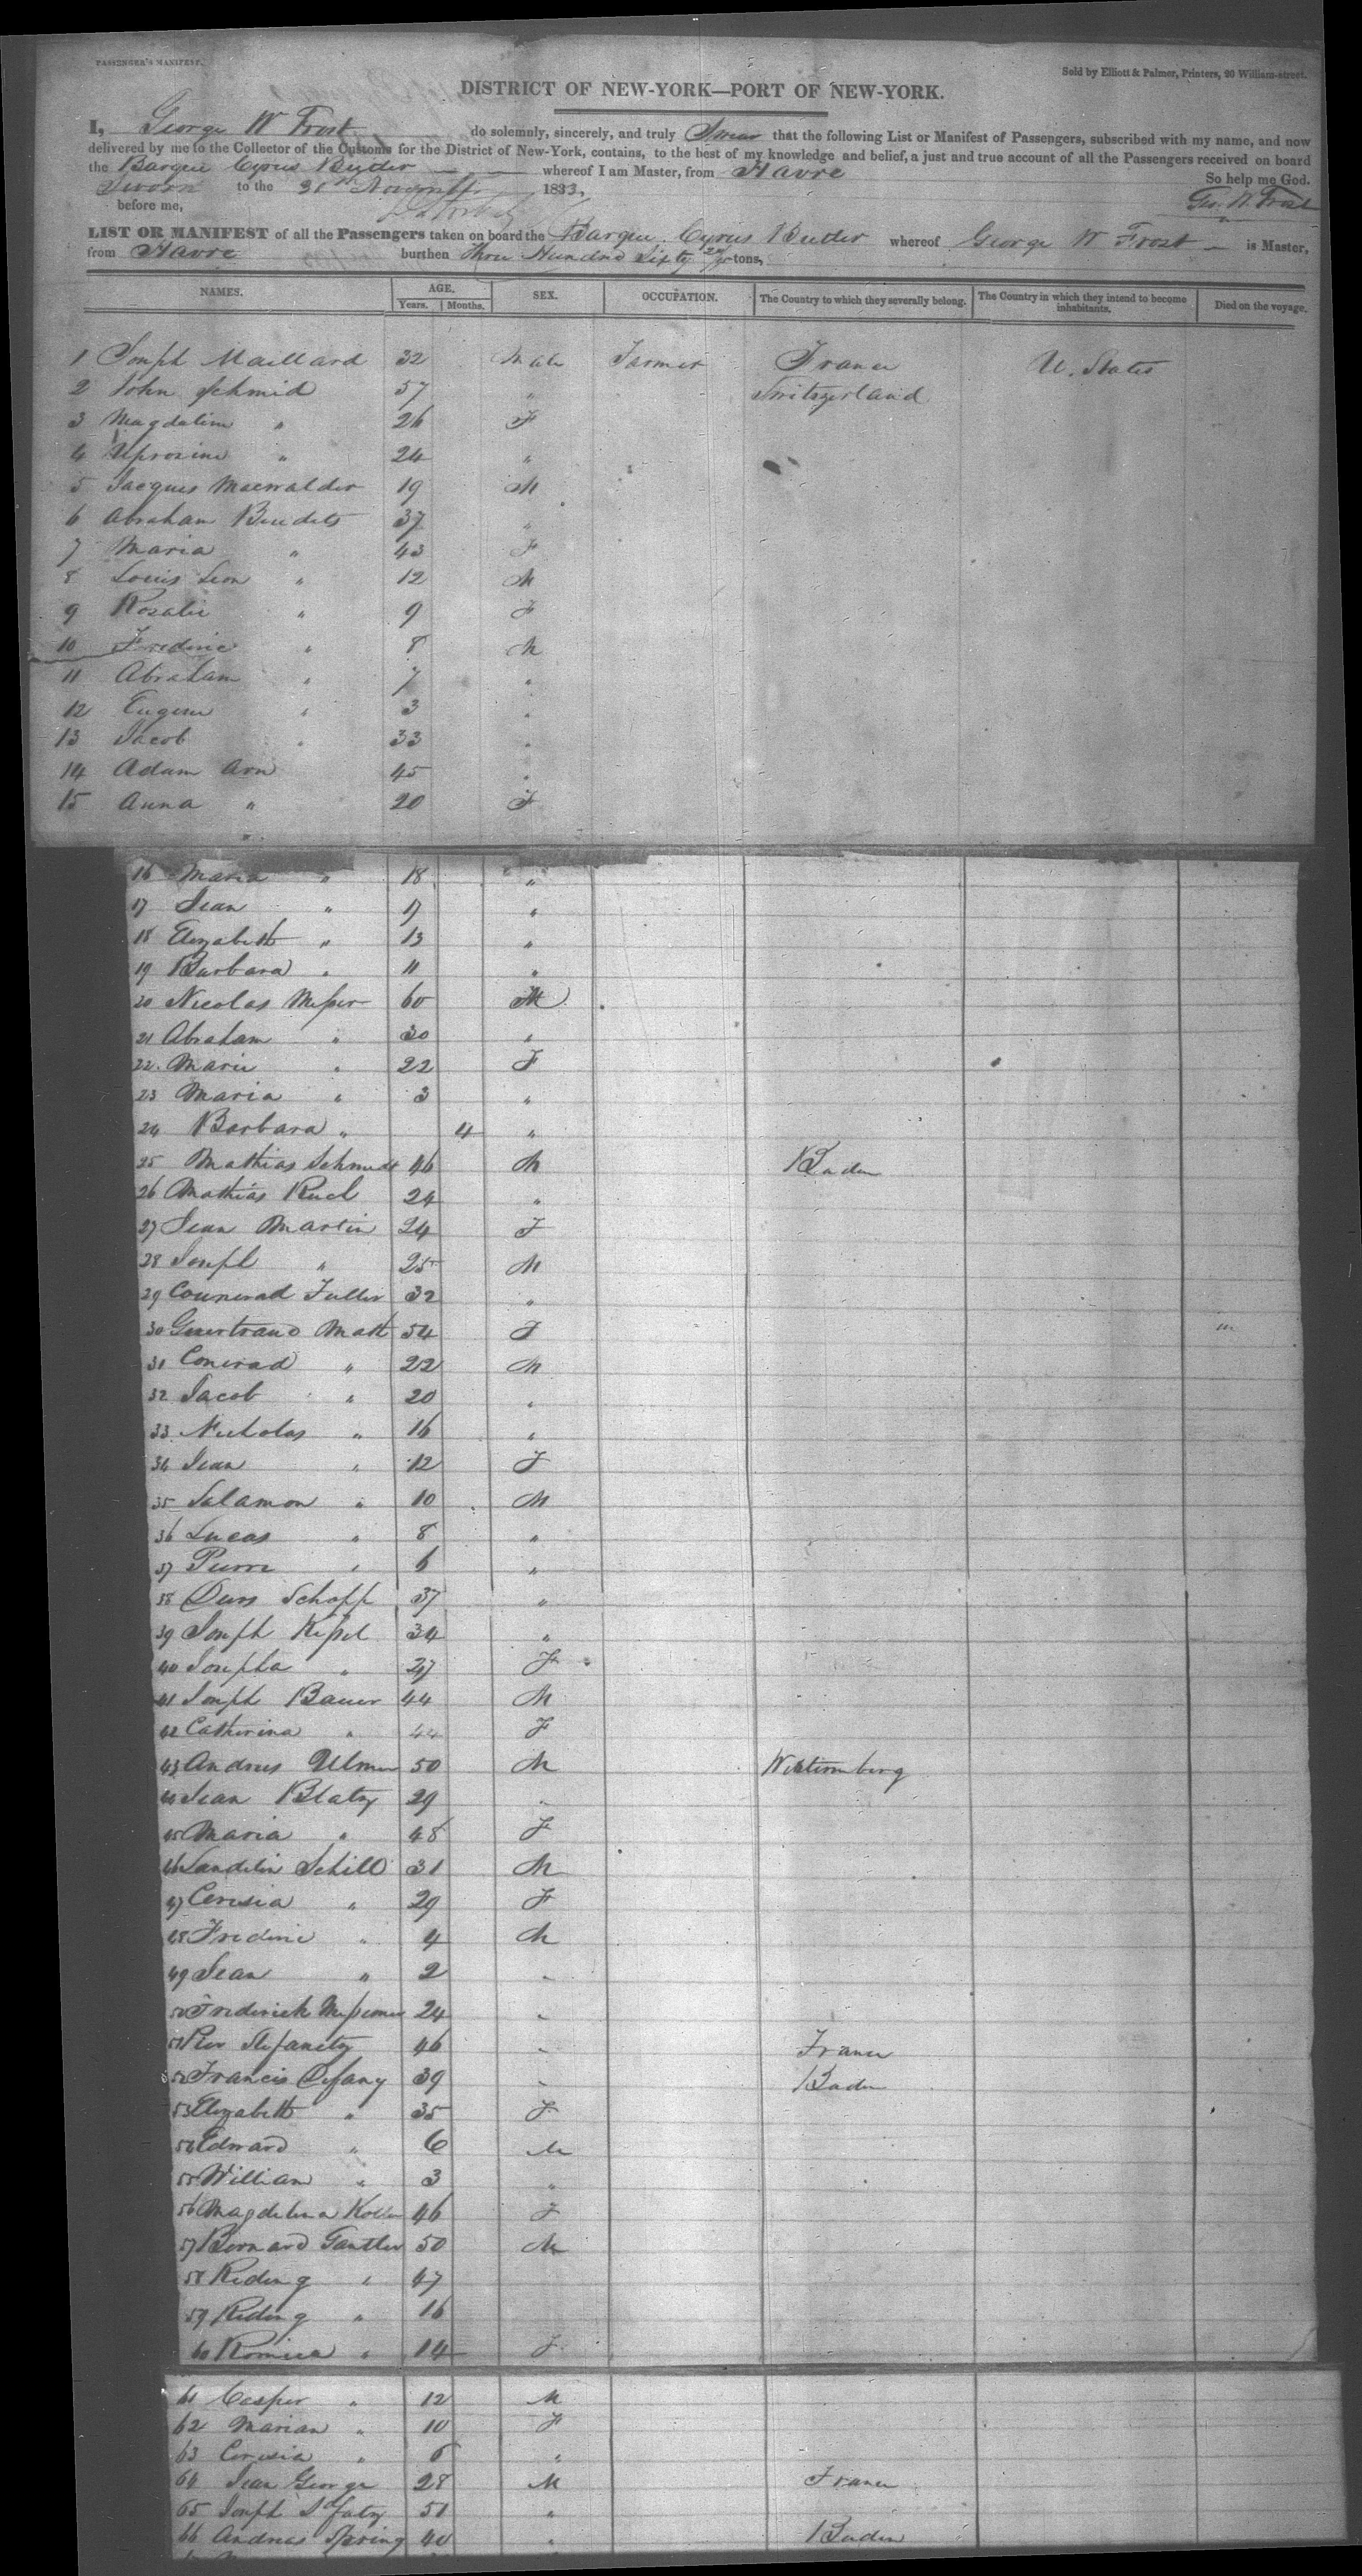 PASSENGER'S MANIFEST.
Sold by Elliott & Palmer, Printers, 20 William-street.
DISTRICT OF NEW-YORK—PORT OF NEW-YORK.
I, George W Frost do solemnly, sincerely, and truly Swear that the following List or Manifest of Passengers, subscribed with my name, and now
delivered by me to the Collector of the Customs for the District of New-York, contains, to the best of my knowledge and belief, a just and true account of all the Passengers received on board
the Barque Cyrus Butler whereof I am Master, from Havre
So help me God.
Sworn to the 30th November 1833,
before me,
Geo. W. Frost
LIST OR MANIFEST of all the Passengers taken on board the Barque Cyrus Butler whereof George W Frost is Master,
from Havre burthen Three Hundred Sixty tons,
NAMES. AGE. SEX. OCCUPATION. The Country to which they severally belong. The Country in which they intend to become inhabitants. Died on the voyage.
Years. Months.
1 Joseph Maillard 32 Male Farmer France U. States
2 John Schmid 57 " Switzerland
3 Magdalina " 26 F
4 " 24 "
5 Jacques 19 M
6 Abraham 37 "
7 Maria " 43 F
8 Louis Leon " 12 M
9 Rosalie " 9 F
10 Frederic " 8 M
11 Abraham " 7 "
12 Eugene " 3 "
13 Jacob " 33 "
14 Adam Arn 45 "
15 Anna " 20 F
16 Maria " 18 "
17 Jean " 17 "
18 Elizabeth " 13 "
19 Barbara " 11 "
20 Nicolas Messer 60 M
21 Abraham " 30 "
22 Marie " 22 F
23 Maria " 3 "
24 Barbara " 4 "
25 Mathias Schmidt 46 M Baden
26 Mathias 24 "
27 Jean Martin 24 F
28 Joseph " 25 M
29 Connerad Fuller 32 "
30 Guertraud Matt 54 F "
31 Conerad " 22 M
32 Jacob " 20 "
33 Nicholas " 16 "
34 Jean " 12 F
35 Salamon " 10 M
36 Lucas " 8 "
37 Pierre " 6 "
38 Durs Schopp 37 "
39 Joseph Kissel 34 "
40 Josepha " 27 F
41 Joseph Bauer 44 M
42 Catherina " 44 F
43 Andres Ulmer 50 M Wirtemberg
44 Jean Blatz 29 "
45 Maria " 48 F
46 Landelin Schill 31 M
47 Ceresia " 29 F
48 Frederic " 4 M
49 Jean " 2 "
50 Frederick 24 "
51 Stefanitz 46 " France
52 Francis Defany 39 " Baden
53 Elizabeth " 35 F
54 Edward " 6 M
55 William " 3 "
56 Magdelena 46 F
57 Bernard Gantler 50 M
58 Reding " 47
59 Reding " 16
60 Romiea " 14 F
61 Casper " 12 M
62 Marian " 10 F
63 Ceresia " 6 "
64 Jean George 28 M France
65 Joseph 51 "
66 Andreas Spring 40 " Baden